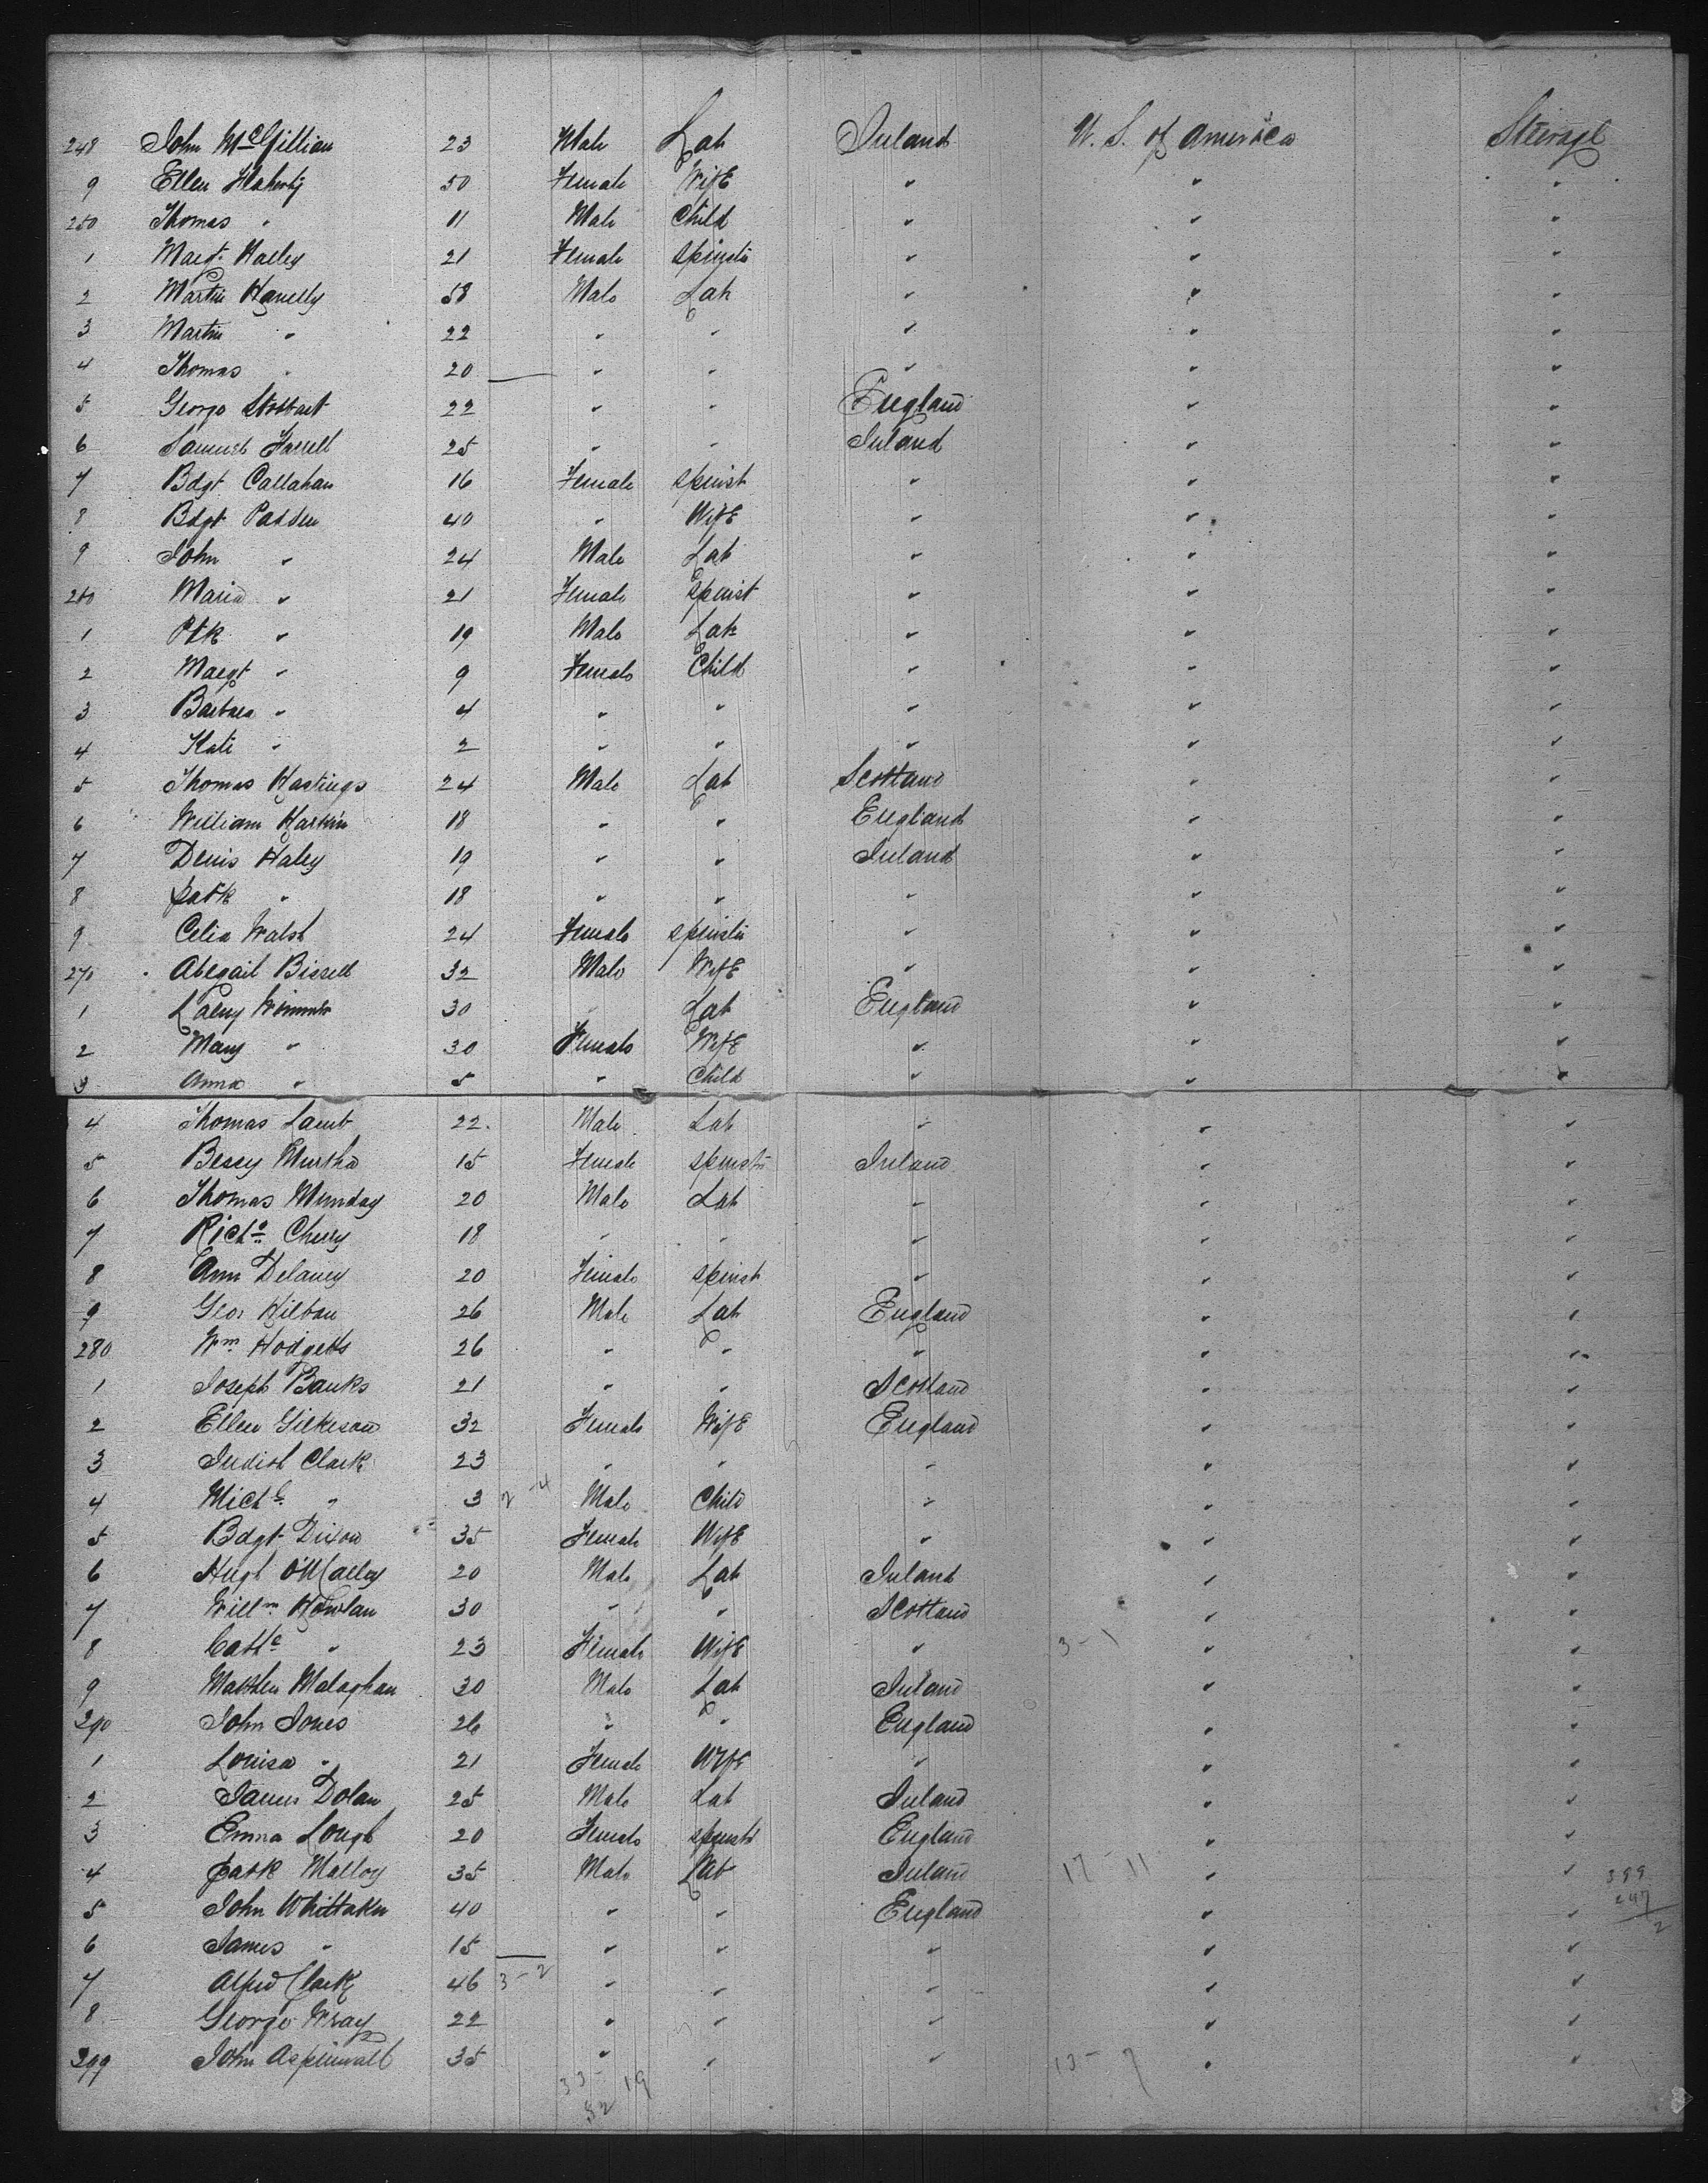 248 John McGillian 23 Male Lab Ireland U. S. of America Steerage
9 Ellen Flaherty 50 Female Wife " " "
250 Thomas " 11 Male Child " " "
1 Margt. 21 Female Spinstr " " "
2 Martin 58 Male Lab " " "
3 Martin " 22 " " " " "
4 Thomas " 20 " " " " "
5 George Stobbart 22 " " England " "
6 Samuel Farrell 25 " " Ireland " "
7 Bdgt Callahan 16 Female Spinst " " "
8 Bdgt Padden 40 " Wife " " "
9 John " 24 Male Lab " " "
260 Maria " 21 Female Spinst " " "
1 Ptk " 19 Male Lab " " "
2 Margt " 9 Female Child " " "
3 Barbara " 4 " " " " "
4 Kate " 2 " " " " "
5 Thomas Hastings 24 Male Lab Scotland " "
6 William Harkin 18 " " England " "
7 Denis Haley 19 " " Ireland " "
8 Patk " 18 " " " " "
9 Celia Walsh 24 Female Spinstr " " "
270 Abegail Bissell 32 Male Wife " " "
1 30 " Lab England " "
2 Mary " 30 Female Wife " " "
3 Anna " 5 " Child " " "
4 Thomas Lamb 22. Male Lab " " "
5 Bessy Murtha 15 Female Spinstr Ireland " "
6 Thomas Munday 20 Male Lab " " "
7 Richd. 18 " " " " "
8 Ann Delaney 20 Female Spinst " " "
9 Geor Kilban 26 Male Lab England " "
280 Wm Hodgetts 26 " " " " "
1 Joseph Banks 21 " " Scotland " "
2 Ellen Gilkeson 32 Female Wife England " "
3 Judith Clark 23 " " " " "
4 Michl. " 3 2-4 Male Child " " "
5 Bdgt Dixon 35 Female Wife " " "
6 Hugh O'Malley 20 Male Lab Ireland " "
7 Willm Howlan 30 " " Scotland " "
8 Cathe " 23 Female Wife " 3-1 " "
9 Matthew Malaghan 30 Male Lab Ireland " "
290 John Jones 26 " " England " "
1 Louisa " 21 Female Wife " " "
2 James Dolan 25 Male Lab Ireland " "
3 Emma Lough 20 Female Spinstr England " "
4 Patk Malloy 35 Male Lab Ireland 17-11 " "
5 John Whittaker 40 " " England " "
6 James " 15 " " " " "
7 Alfred Clark 46 3-2 " " " " "
8 George Wray 22 " " " " "
299 John Aspinwall 35 " " " 13-7 " "